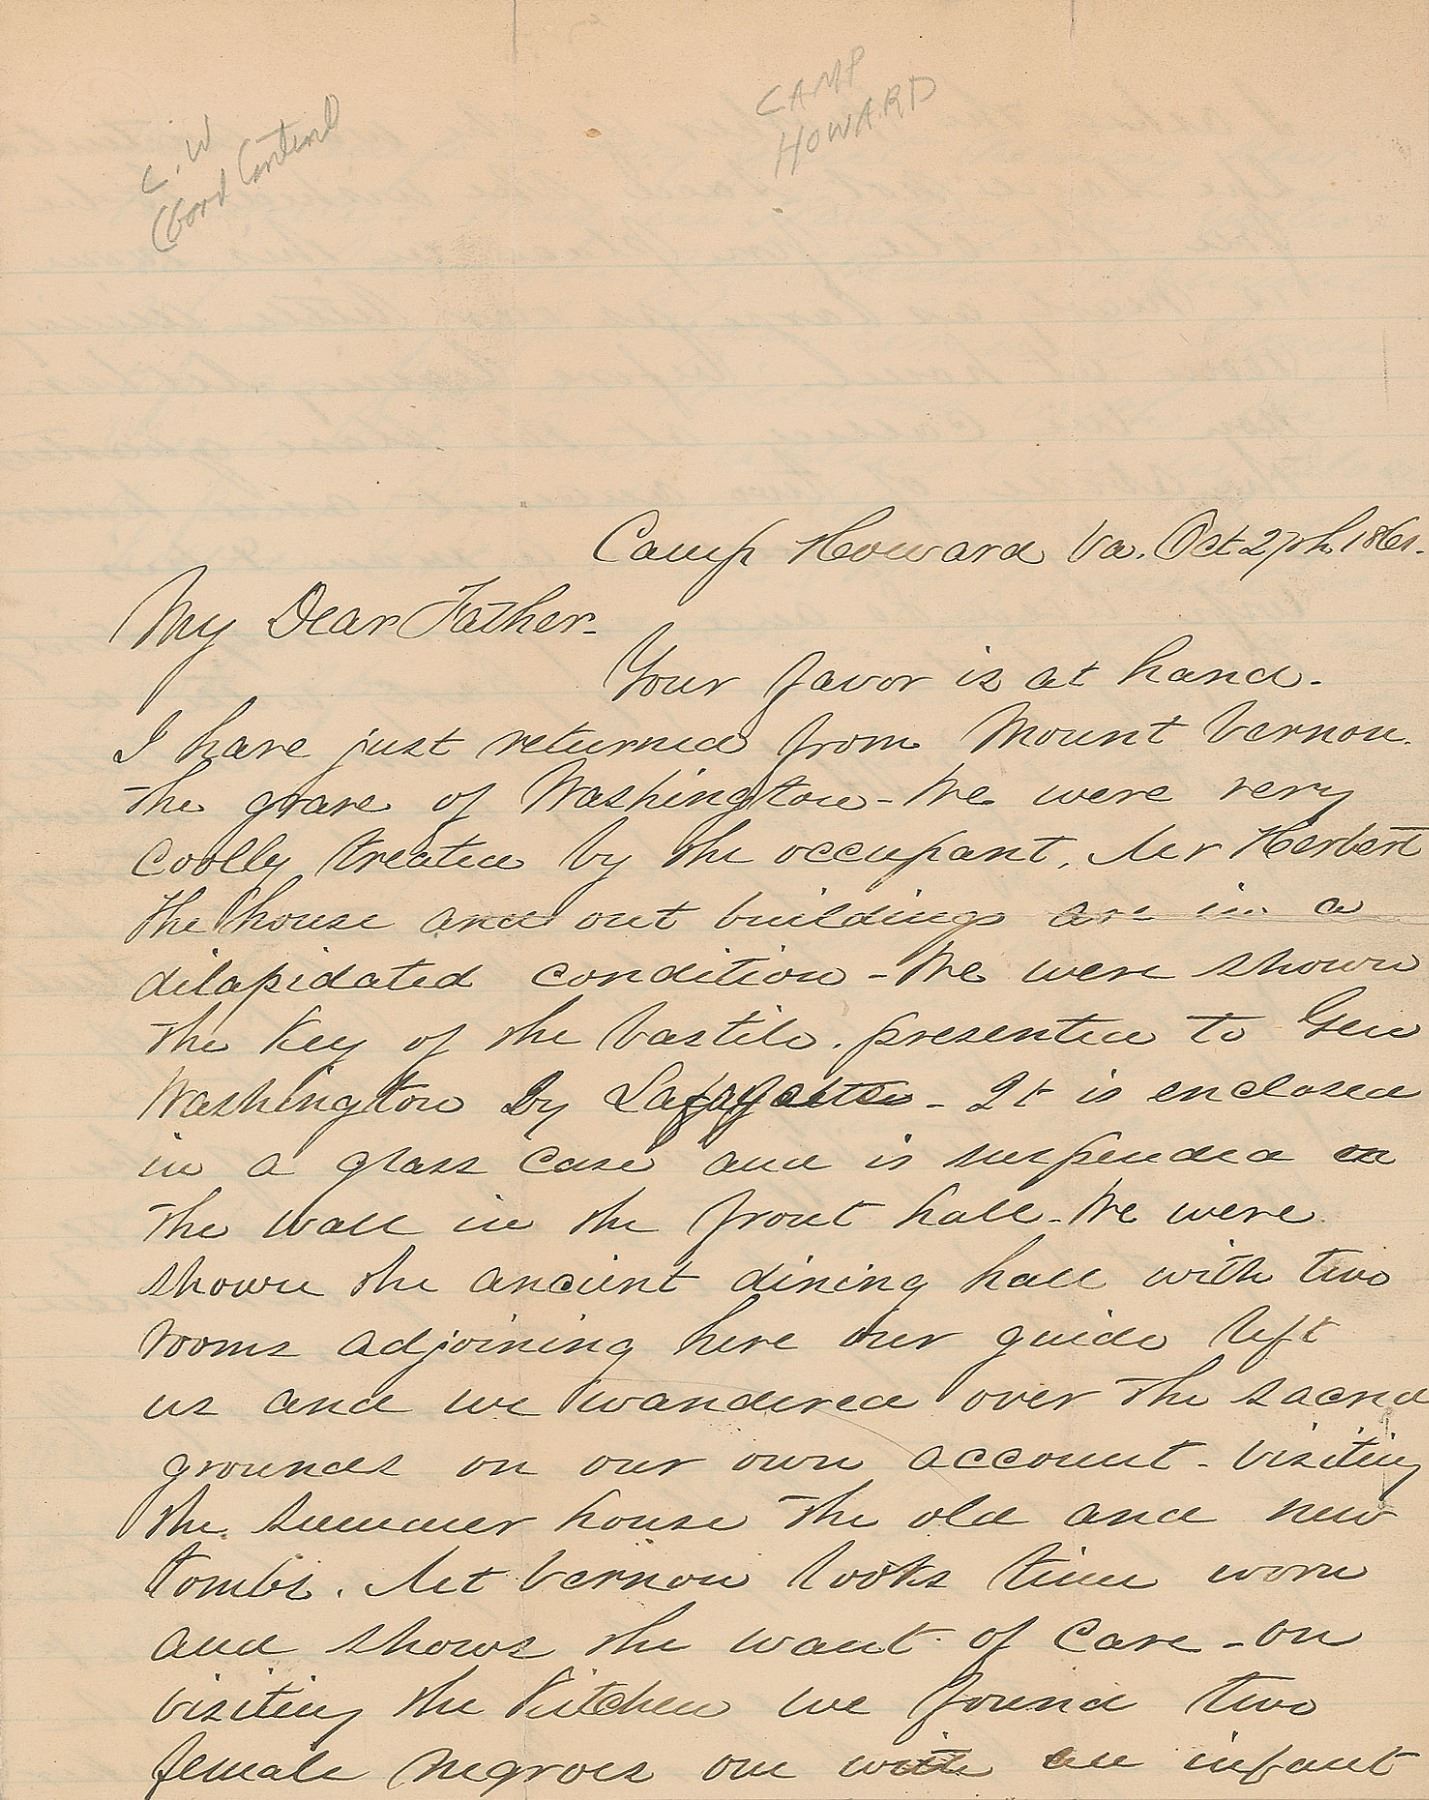 C.W
Good Content
CAMP
HOWARD
Camp Howard Va. Oct 27th 1861.
My Dear Father-
Your favor is at hand.
I have just returned from Mount Vernon.
The grave of Washington - We were very
Coolly treated by the occupant, Mr Herbert
The house and out buildings are in a
dilapidated condition - We were shown
The Key of the bastile. presented to Gen
Washington By Lafayette - It is enclosed
in a glass case and is suspended on
The wall in the front hall - We were
shown the ancient dining hall with two
rooms adjoining here our guide left
us and we wandered over the sacred
grounds on our own account - visiting
The summer house the old and new
tombs. Mt Vernon looks time worn
and shows the want of care - on
visiting the Kitchen we found two
female negroes one with an infant